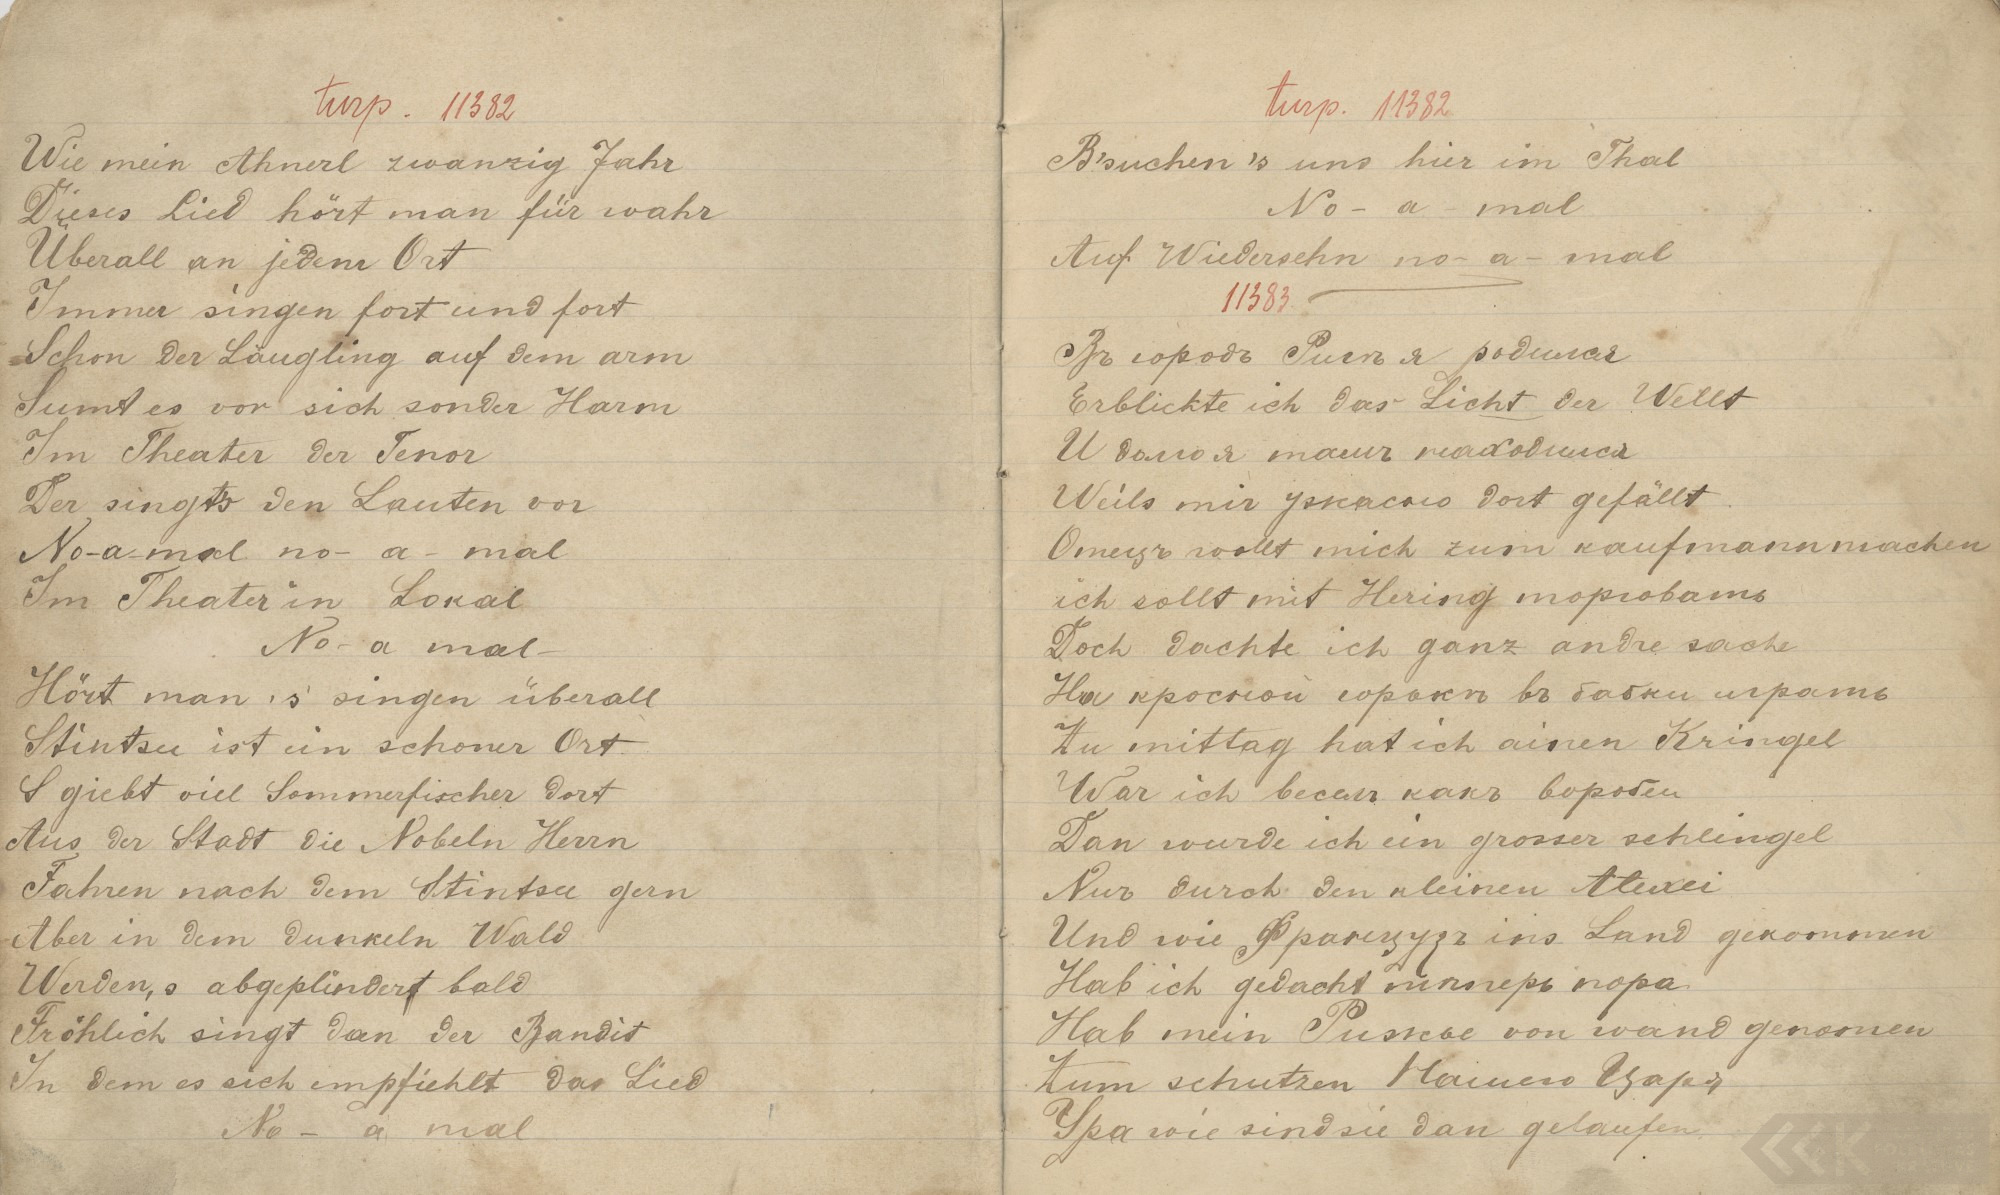 turp. 11382
Wie mein Ahnerl zwanzig Jahr
Dieses Lied hört man für wahr
Überall an jedem Ort
Immer singen fort und fort
Schon der Läugling auf dem arm
Sumt es vor sich sonder Harm
Im Theater der Tenor
Der singt's den Lauten vor
No-a-mal no-a-mal
Im Theater in Lokal
No-a mal-
Hört man 's singen überall
Stintsee ist ein schoner Ort
S giebt viel Sommerfischer dort
Aus der Stadt die Nobeln Herrn
Fahren nach dem Stintsee gern
Aber in dem dunkeln Wald
Werden,s abgeplindert bald
Fröhlich singt dan der Bandit
In dem es sich empfiehlt das Lied
No-a mal
turp. 11382
B'suchen 's uns hier im Thal
No-a-mal
Auf Wiedersehn no-a-mal
11383
Въ городъ Ригъ я родился
Erblickte ich das Licht der Wellt
И долго я тамъ находился
Weils mir ужасно dort gefällt
Отецъ wollt mich zum kaufmann machen
ich sollt mit Hering торговать
Doch dachte ich ganz andre sache
На кросной горькъ въ бабки играть
Zu mittag hat ich ainen Kringel
War ich веселъ какъ воробеи
Dan wurde ich ein grosser schlingel
Nur durch den kleinen Alexei
Und wie Французъ ins Land gekommen
Hab ich gedacht пора
Hab mein Ружье von wand genomen
Zum schutzen Нашего Царя
Ура wie sind sie dan gelaufen